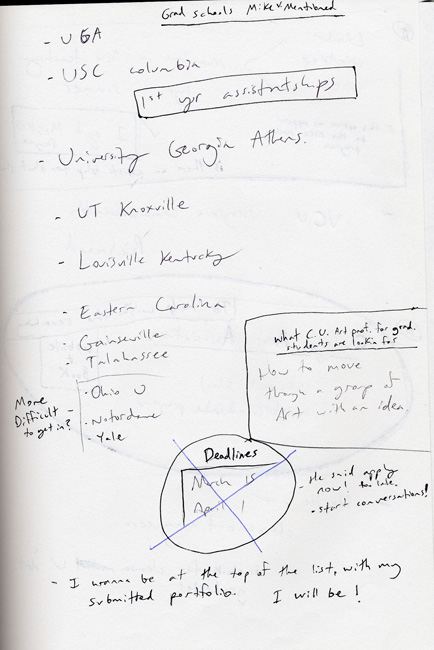 Grad schools Mike V. Mentioned
- UGA
- USC columbia
1st yr assistntships
- University Georgia Athens.
- UT Knoxville
- Louisville Kentucky
- Eastern Carolina
- Gainseville
- Talahassee
More
Difficult -
to get in?
· Ohio U
· Notordame
· Yale
What C.U. Art prof. for grad.
students are lookin for
How to move
though a group of
Art with an idea.
Deadlines
March 15
April 1
- He said apply
now! to late.
· start conversations!
- I wanna be at the top of the list, with my
submitted portfolio. I will be!